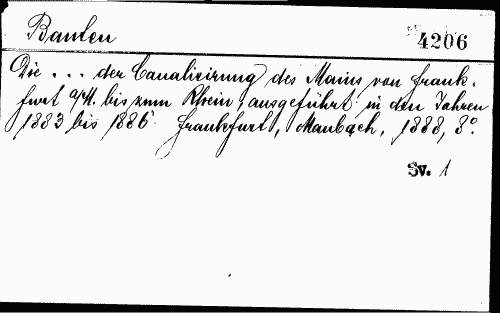 Bauten
4206
Die ... der Canalisirung des Mains von Frank-
furt a/M. bis zum Rhein, ausgeführt in den Jahren
1883 bis 1886. Frankfurt, Maubach, 1888, 8°.
Sv. 1